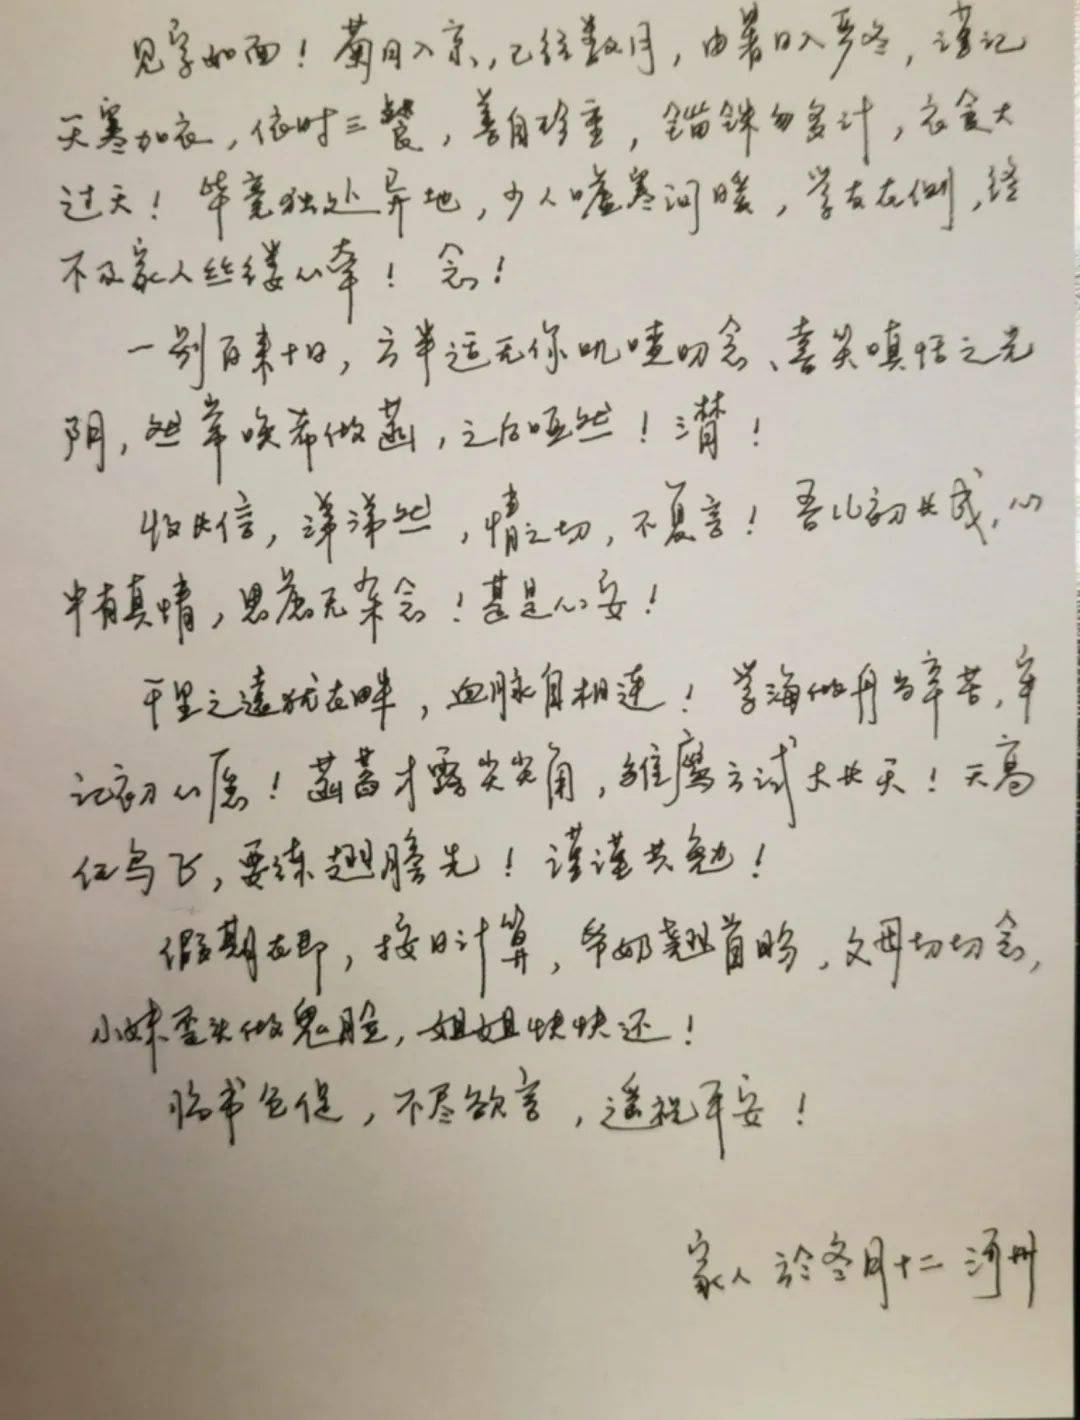 见字如面！菊月入京，已经数月，由暑日入严冬，谨记
天寒加衣，依时三餐，善自珍重，锱铢勿多计，衣食大
过天！毕竟独处异地，少人嘘寒问暖，学友在侧，终
不及家人丝缕心牵！念！
一别百来十日，方半适无你叽喳叨念、喜笑嗔恬之光
阴，然常唤希做函，之后哑然！潸！
收长信，涕涕然，情之切，不复言！吾儿初长成，心
中有真情，思虑无杂念！甚是心安！
千里之远犹在畔，血脉自相连！学海做舟当辛苦，牢
记初心愿！菡萏才露尖尖角，雏鹰方试大长天！天高
任鸟飞，要练翅膀先！谨谨共勉！
假期在即，按日计算，爷奶翘首盼，父母切切念，
小妹歪头做鬼脸，姐姐快快还！
临书仓促，不尽欲言，遥祝平安！
家人 於冬月十二 河州